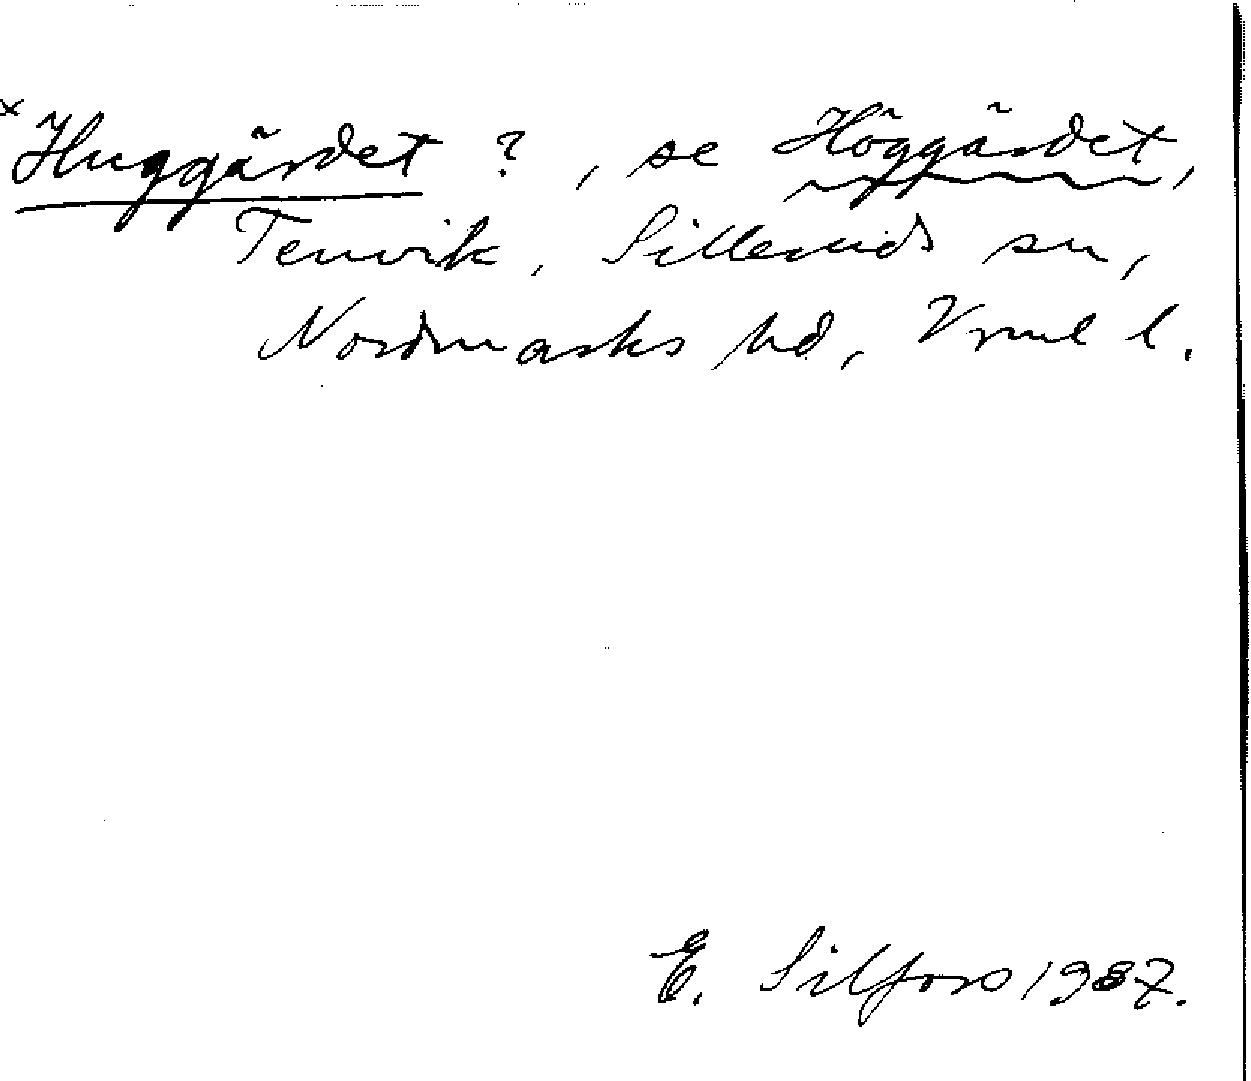 x Huggärdet ?, se Höggärdet,
Tenvik, Silleruds sn,
Nordmarks hd, Vrml l.
E. Silfors 1987.